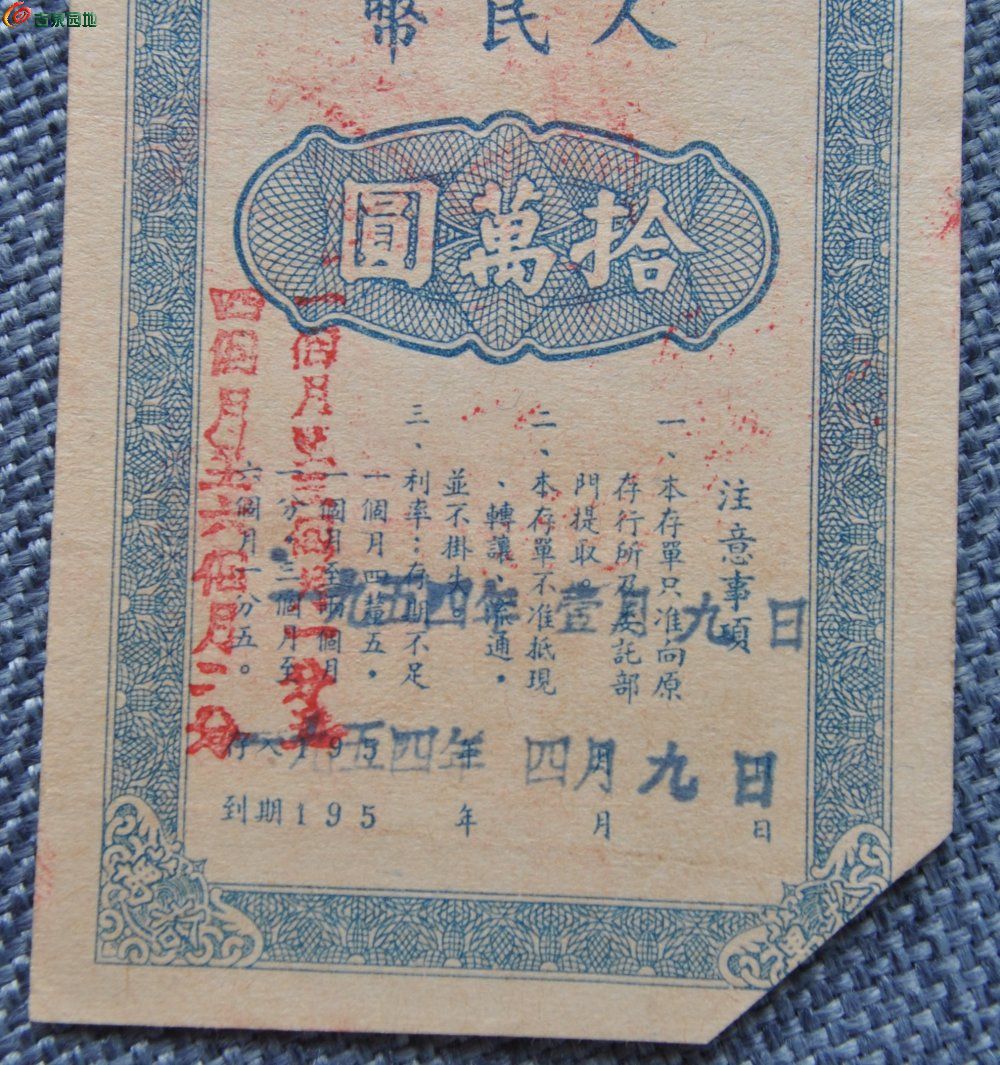 古泉园地
人民幣
拾萬圓
注意事項
一、本存單只准向原
存行所及委託部
門提取。
二、本存單不准抵現
、轉讓、流通，
並不掛失。
三、利率：存期不足
一個月四釐五，
一個月至兩個月
一分，三個月至
六個月一分五。
一個月至三個月一分五
四個月至六個月二分
一九五四年 壹月九日
存入195 年
一九五四年 四月九日
到期195 年 月 日